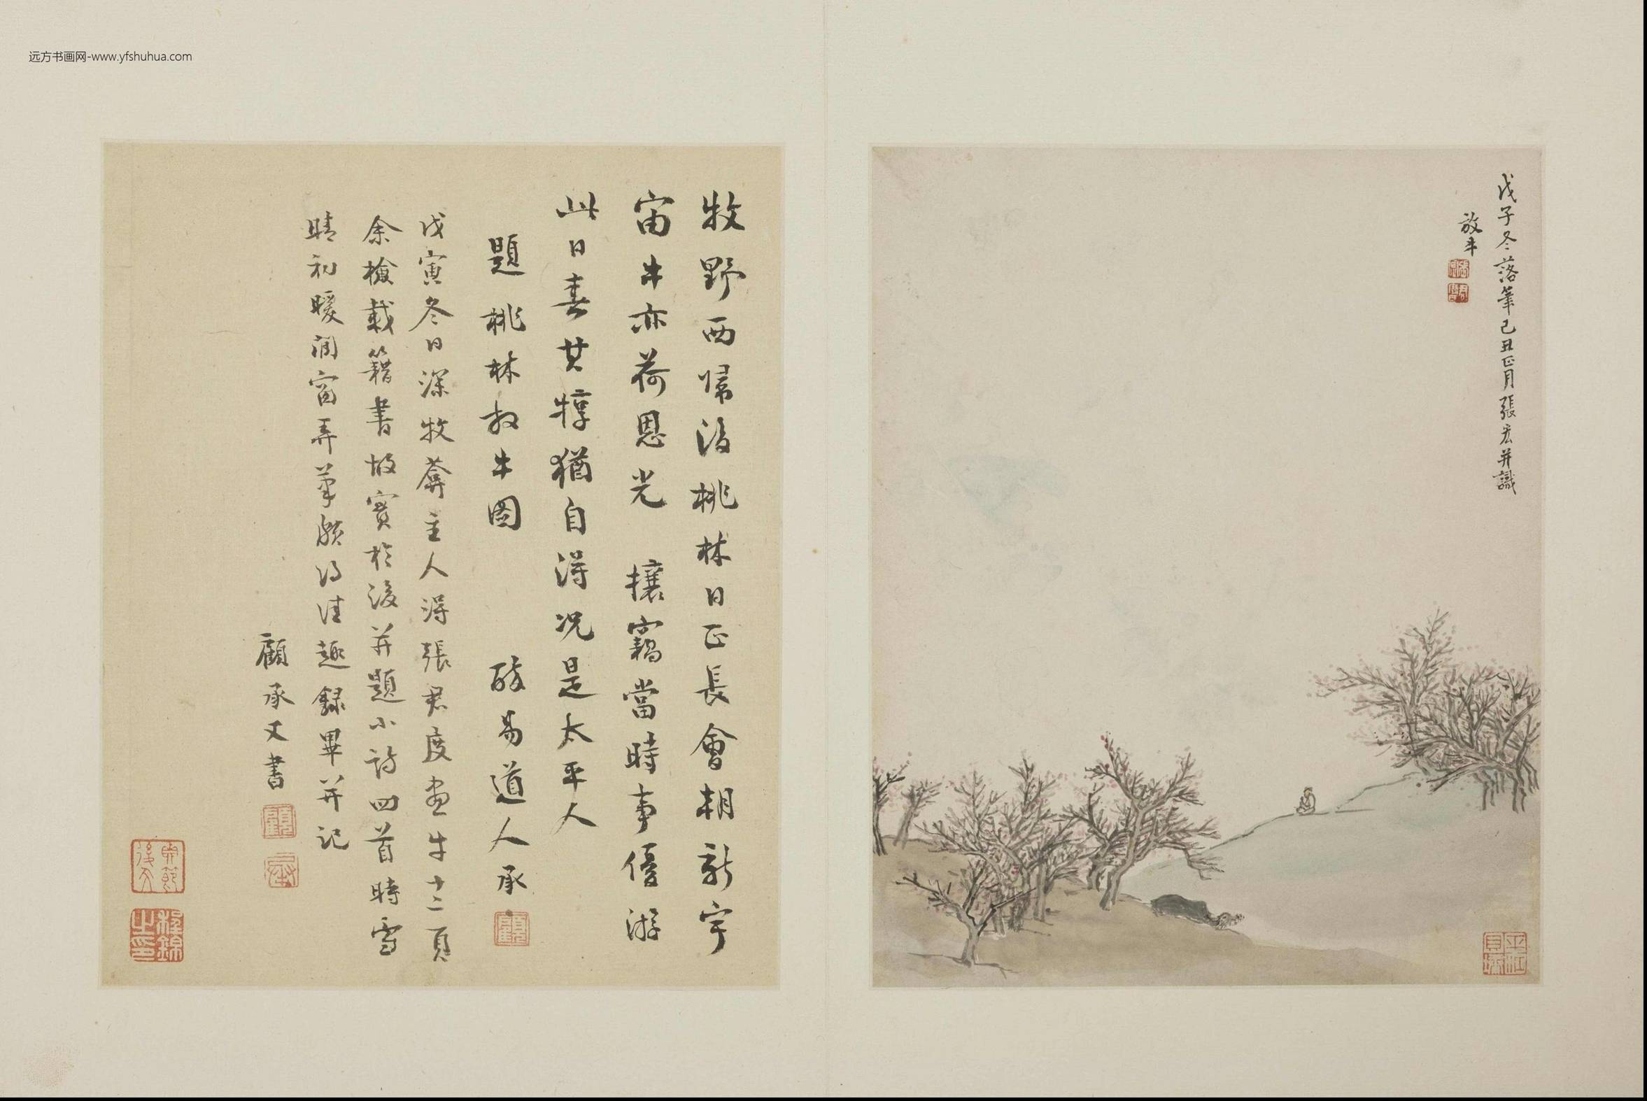 远方书画网-www.yfshuhua.com
戊子冬落筆己丑正月張宏并識
放牛
牧野西歸後桃林日正長會朝新宇
宙牛亦荷恩光 攘竊當時事優游
此日春其犉猶自得況是太平人
題桃林放牛圖 醉易道人承
戊寅冬日深牧齋主人得張君度畫牛十二頁
余檢載籍書故實於後并題小詩四首時雪
晴初暖潤窗弄筆頗得佳趣錄畢并記
顧承文書
平江
程錦
之印